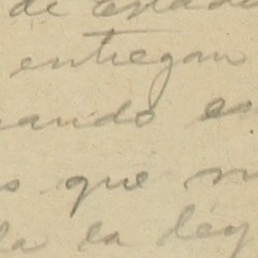 de estado
entregan
ando es
s que m
la la ley